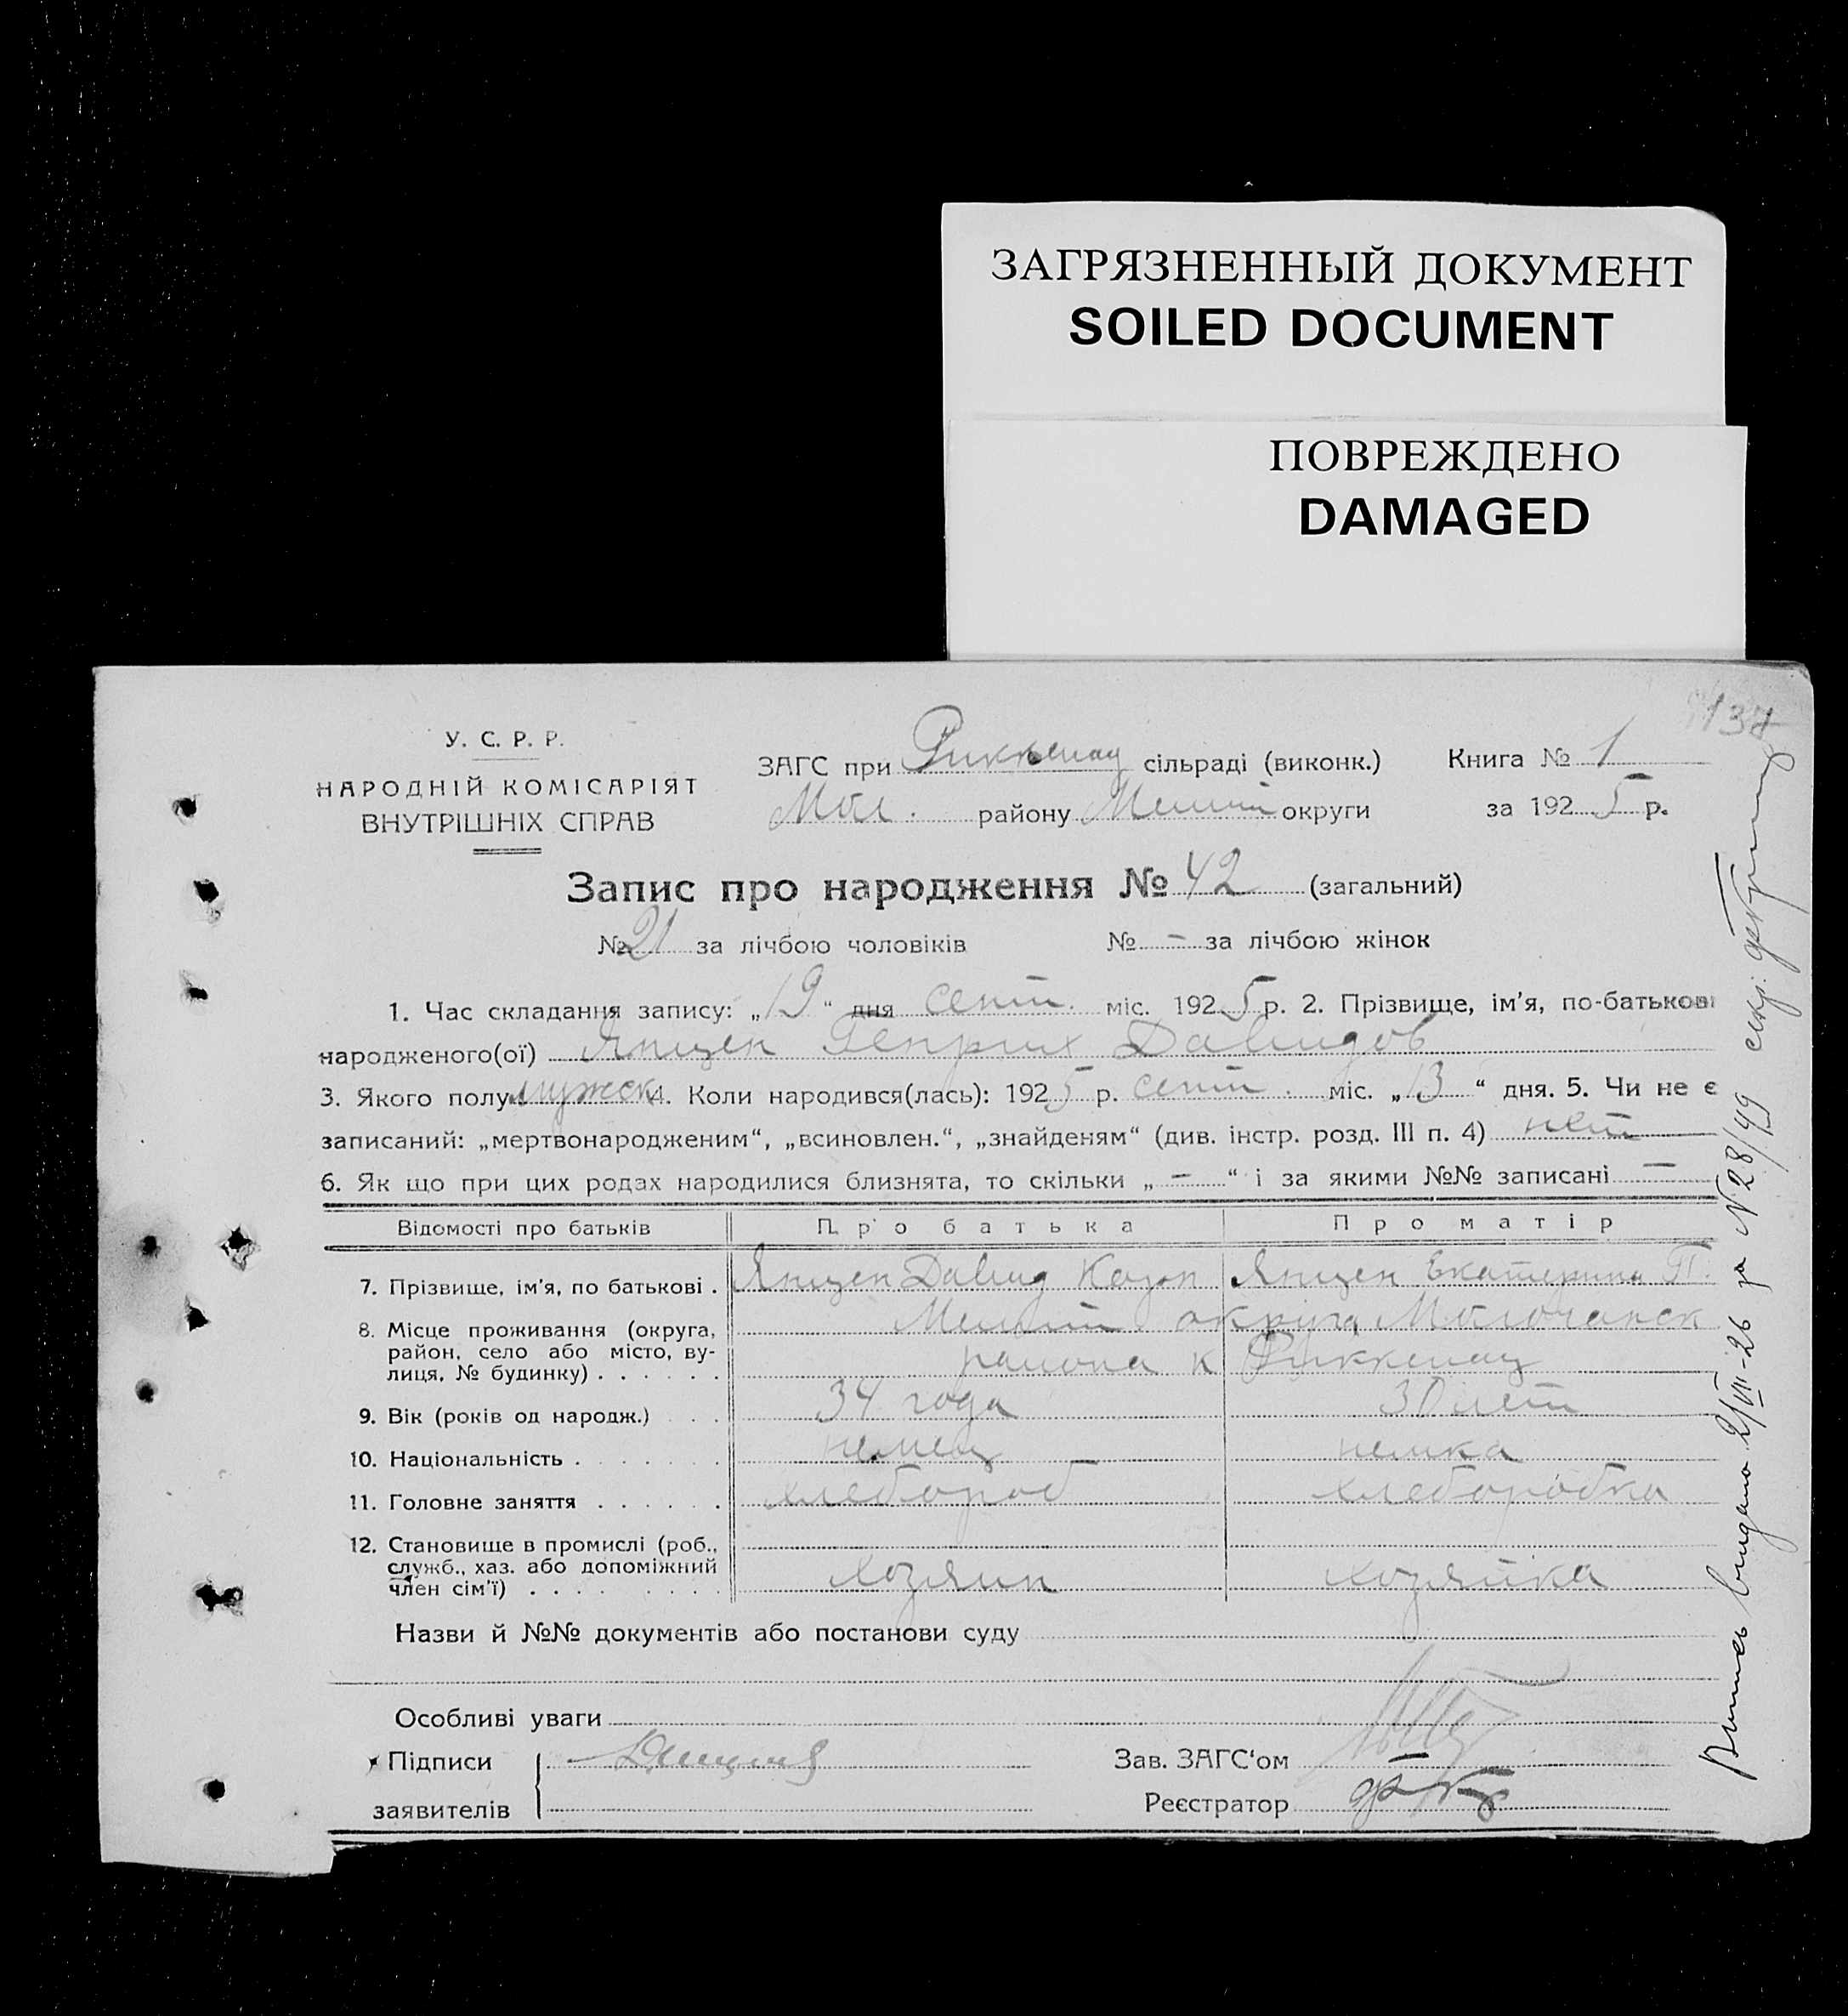 ЗАГРЯЗНЕННЫЙ ДОКУМЕНТ
SOILED DOCUMENT
ПОВРЕЖДЕНО
DAMAGED
137
У. С. Р. Р.
НАРОДНІЙ КОМІСАРІЯТ
ВНУТРІШНІХ СПРАВ
ЗАГС при Риккенау сільраді (виконк.) Книга № 1
Мол. району Мелит округи за 1925 р.
Запис про народження № 42 (загальний)
№ 21 за лічбою чоловіків № – за лічбою жінок
1. Час складання запису: „19“ дня сент. міс. 1925 р. 2. Прізвище, ім’я, по-батькові
народженого(ої) Янцен Генрих Давидов
3. Якого полу мужск 4. Коли народився(лась): 1925 р. сент. міс. „13“ дня. 5. Чи не є
записаний: „мертвонародженим“, „всиновлен.“, „знайденям“ (див. інстр. розд. III п. 4) нет
6. Як що при цих родах народилися близнята, то скільки „–“ і за якими №№ записані –
Відомості про батьків Про батька Про матір
7. Прізвище, ім’я, по батькові . Янцен Давид Янцен Екатерина П.
8. Місце проживання (округа, район, село або місто, вулиця, № будинку) . . . . . . Мелит. округа Молочанск
района к Риккенау
9. Вік (років од народж.) . . . 34 года 30 лет
10. Національність . . . . . . . немец немка
11. Головне заняття . . . . . . хлебороб хлеборобка
12. Становище в промислі (роб., служб., хаз. або допоміжний член сім’ї) . . . . . . . хозяин хозяйка
Назви й №№ документів або постанови суду
Особливі уваги
Підписи
заявителів
Зав. ЗАГС‘ом
Реєстратор
Выпись выдана 2/VII-26 за N 28/49 секр.